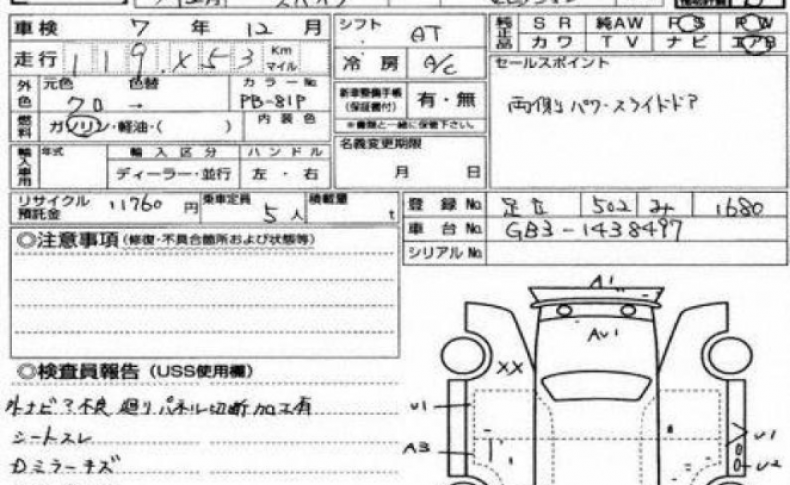 車検 7 年 12 月
シフト AT
純正品 SR 純AW PS PW
カワ TV ナビ エアB
走行 119,×53 Km マイル
冷房 A/C
セールスポイント
外色 元色 色替 カラーNo
70 → PB-81P
新車整備手帳(保証書付) 有・無
※書類と一緒に保管下さい。
両側パワースライドドア
燃料 ガソリン・軽油・( ) 内装色
名義変更期限
月 日
輸入車用 年式 輸入区分 ハンドル
ディーラー・並行 左・右
リサイクル預託金 11760 円 乗車定員 5人 積載量 t
登録No. 足立 502 み 1680
車台No. GB3-1438497
シリアルNo.
◎注意事項(修復・不具合箇所および状態等)
◎検査員報告(USS使用欄)
外ナビ?不良 廻りパネル切断加工有
シートスレ
Dミラーキズ
A1
AU1
XX
U1
A3
U1
U2